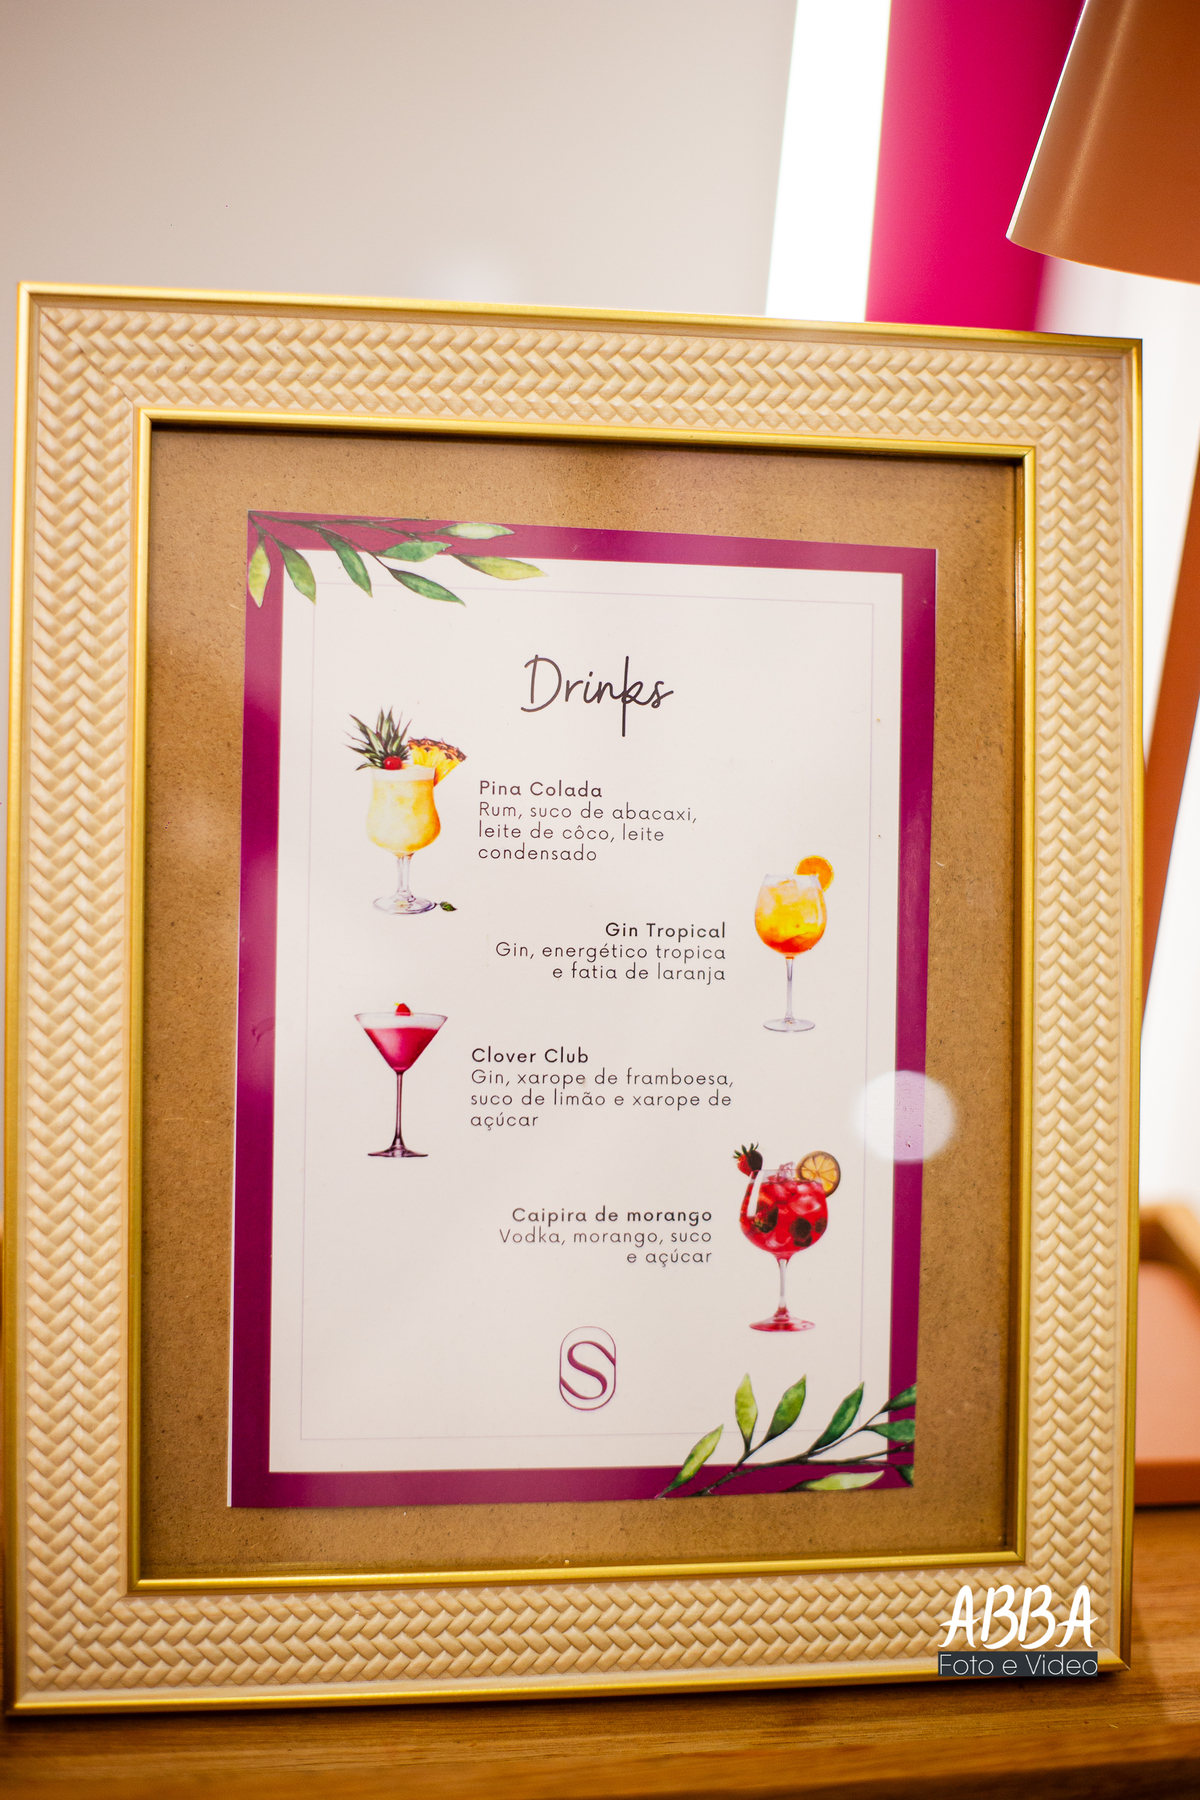 Drinks
Pina Colada
Rum, suco de abacaxi,
leite de côco, leite
condensado
Gin Tropical
Gin, energético tropica
e fatia de laranja
Clover Club
Gin, xarope de framboesa,
suco de limão e xarope de
açúcar
Caipira de morango
Vodka, morango, suco
e açúcar
S
ABBA
Foto e Video